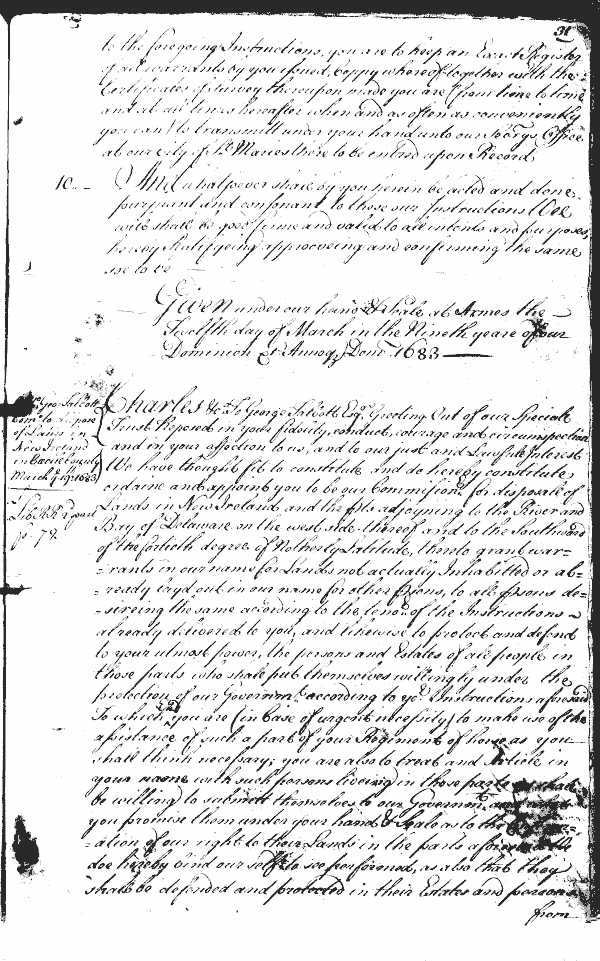 31
to the foregoing Instructions, you are to keep an Exact Register
of all warrants by you issued, Coppy whereof together with the
Certificates of Survey thereupon made you are (from time to time
and at all times hereafter when and as often as conveniently
you can) to transmitt under your hand unto our Secrys Office
at our City of St Maries there to be entred upon Record,
10.- And whatsoever shall by you herein be acted and done
pursuant and consonant to these our Instructions Wee
will shall be good firme and valid to all intents and purposes,
hereby Ratifyeing approoveing and confirming the same
soe to be
Given under our hand & Seale at Armes the
Twelfth day of March in the Nineth yeare of our
Dominion &c Annoq Domi 1683
Charles &c To George Talbott Esqr Greeting Out of our Speciall
Trust Reposed in your fidelity, conduct, courage and circumspection
and in your affection to us, and to our just and Lawfull Interest
We have thought fit to constitute and do hereby constitute
ordaine and appoint you to be our Commissionr for disposall of
Lands in New Ireland and the pts adjoyning to the River and
Bay of Delaware on the west side thereof and to the Southward
of the fortieth degree of Notherly Latitude, there to grant war=
=rants in our name for Lands not actually Inhabitted or al=
=ready layd out in our name for other psons, to all psons de=
=sireing the same according to the tenor of the Instructions
already delivered to you, and likewise to protect and defend
to your utmost power, the persons and Estates of all people in
those parts who shall put themselves willingly under the
protection of our Governmt according to yor Instructions aforesaid
To which End you are (in Case of urgent necessity) to make use of the
assistance of such a part of your Regiment of horse as you
shall think necessary; you are also to treat and Article in
your name with such persons liveing in those parts as shall
be willing to submitt themselves to our Governmt and
you promise them under your hand & Seale as to the
=ation of our right to their Lands in the parts aforesaid We
doe hereby bind our self to see performed, as also that they
shall be defended and protected in their Estates and persons
from
Geo: Talbott
Comr to dispose
of Lands in
New Ireland
in Cecil County
March 19. 1683
Lib:
fo: 78